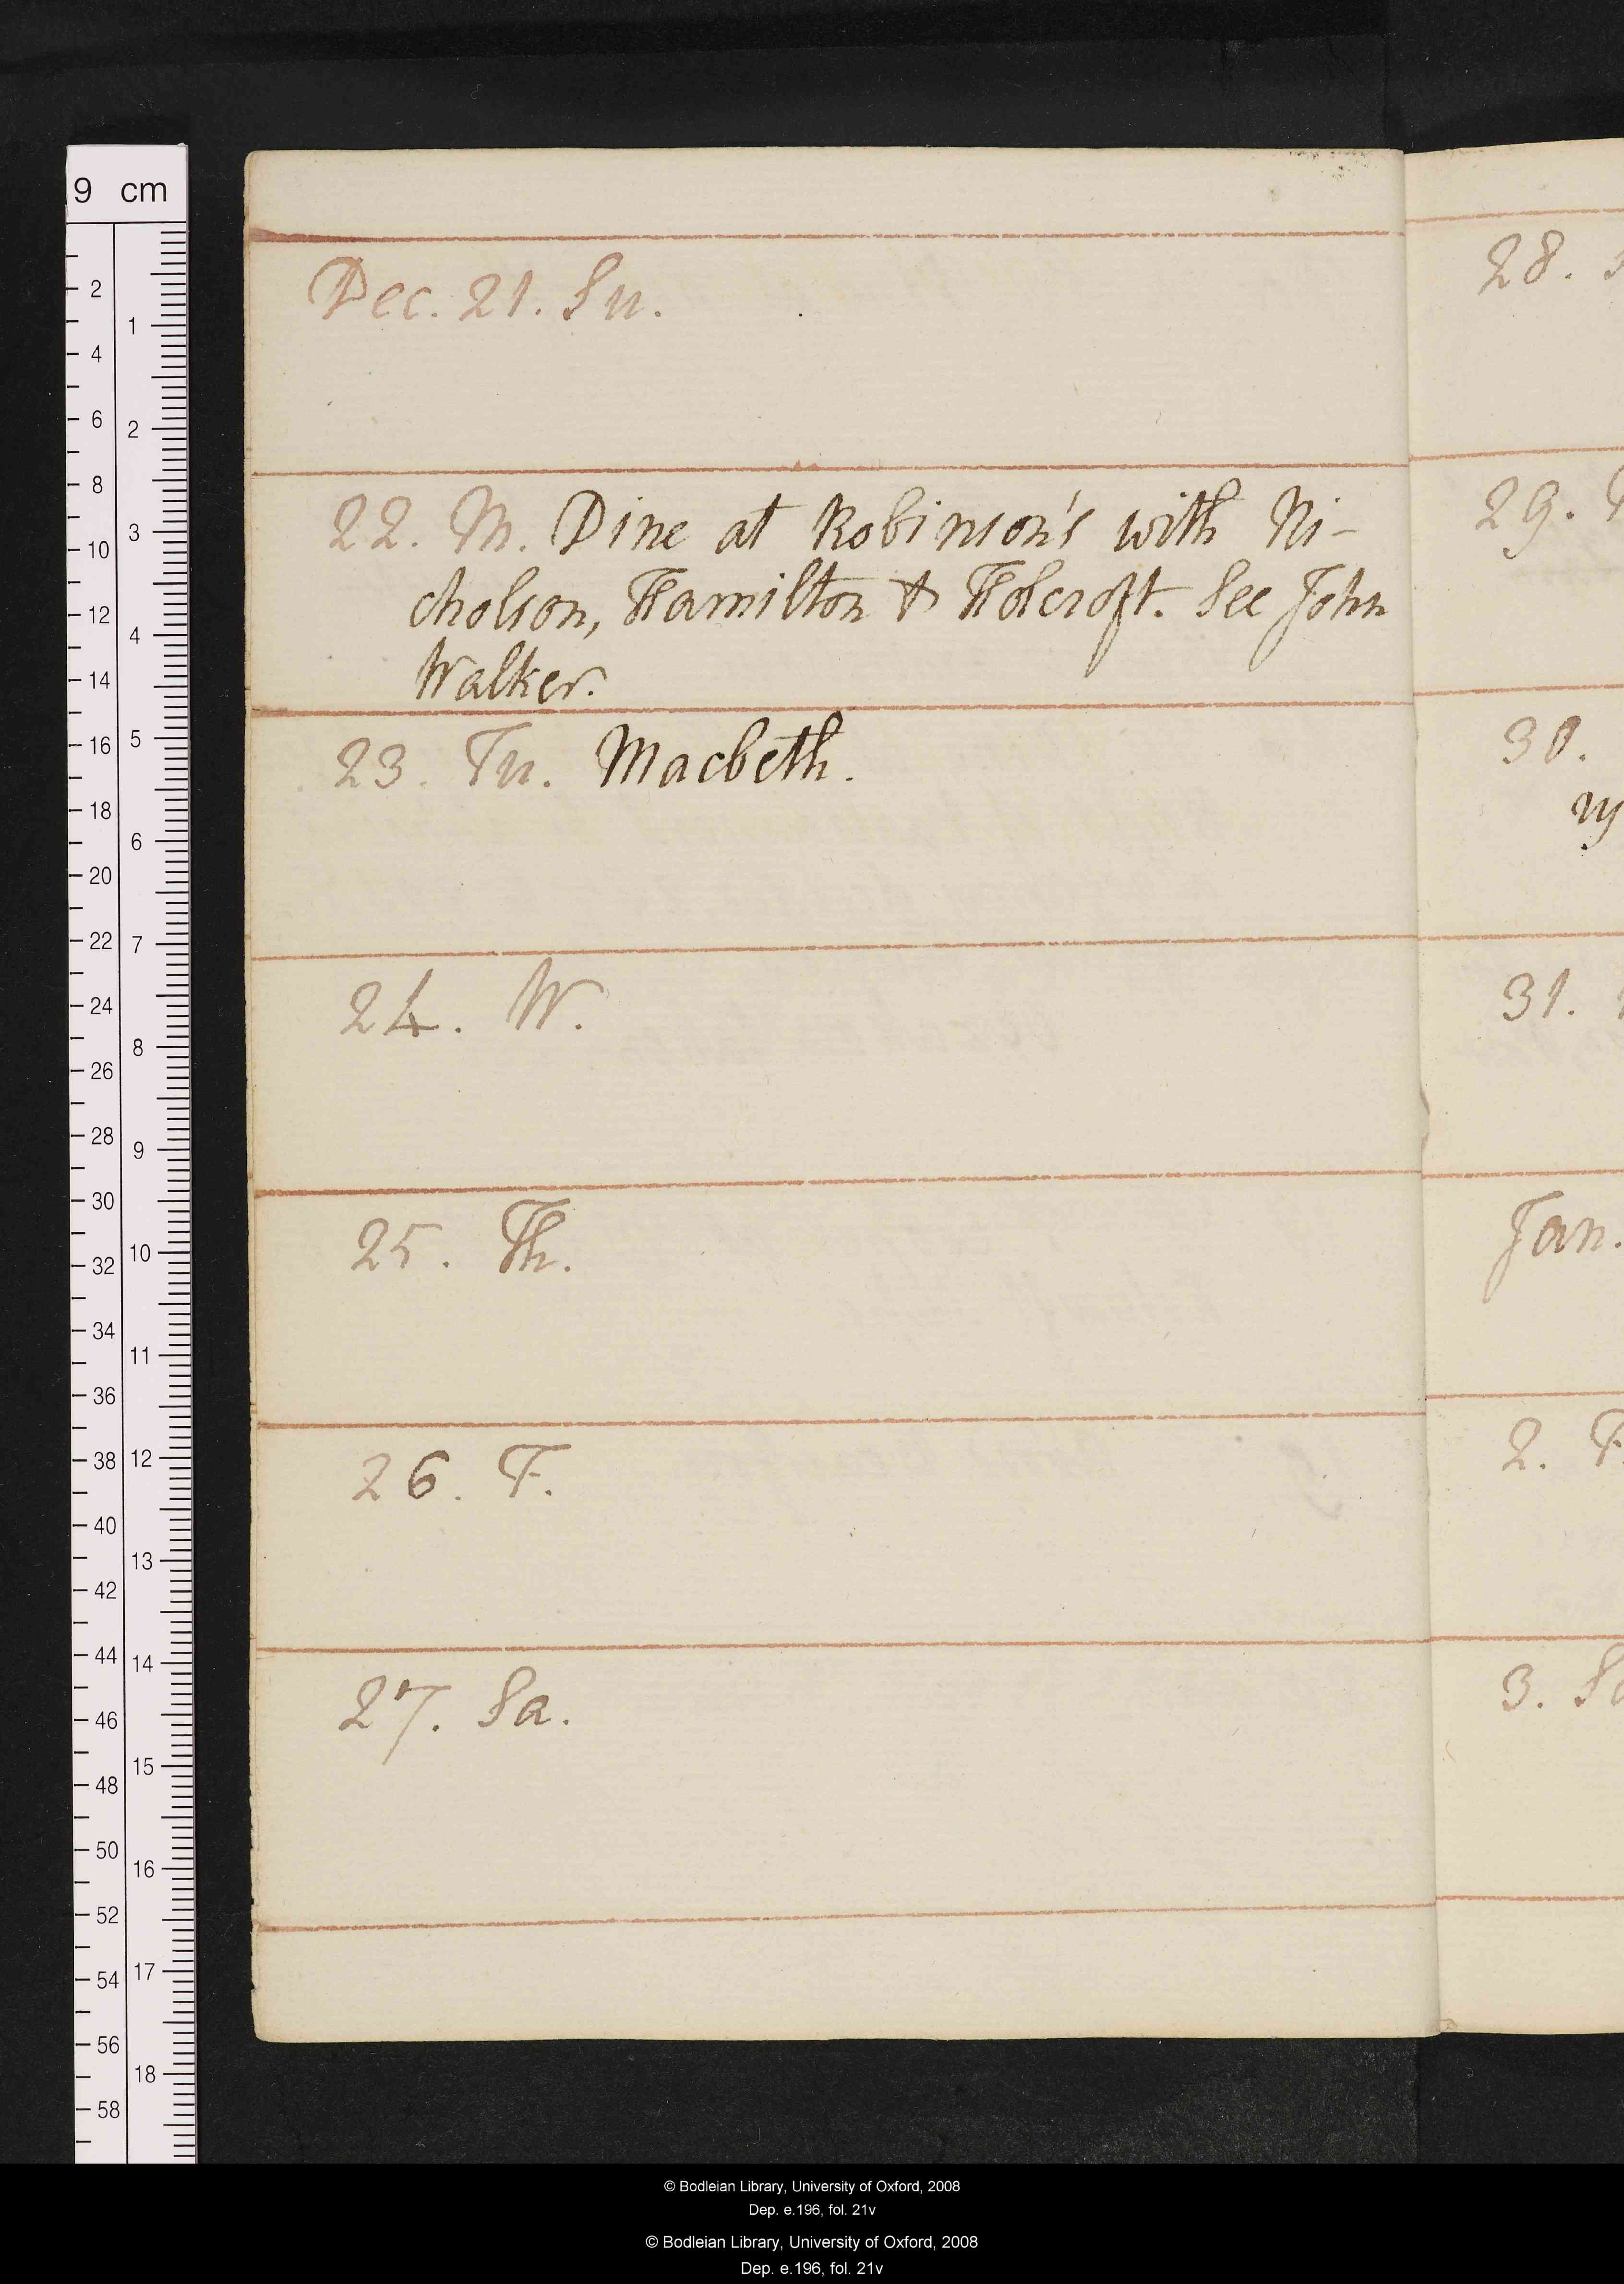 Dec. 21. Su.
22. M. Dine at Robinson's with Ni-
cholson, Hamilton & Holcroft. See John
Walker.
23. Tu. Macbeth.
24. W.
25. Th.
26. F.
27. Sa.
28.
29.
30.
31.
Jan.
2. F.
3. Sa
9 cm
2
4
6
8
10
12
14
16
18
20
22
24
26
28
30
32
34
36
38
40
42
44
46
48
50
52
54
56
58
1
2
3
4
5
6
7
8
9
10
11
12
13
14
15
16
17
18
© Bodleian Library, University of Oxford, 2008
Dep. e.196, fol. 21v
© Bodleian Library, University of Oxford, 2008
Dep. e.196, fol. 21v